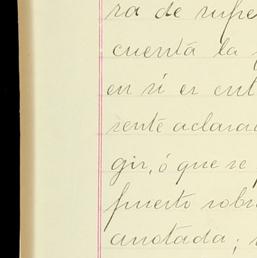 ra de supe
cuenta la
en si es ent
sente aclara
gir, ó que se
puerto sobr
anotada;